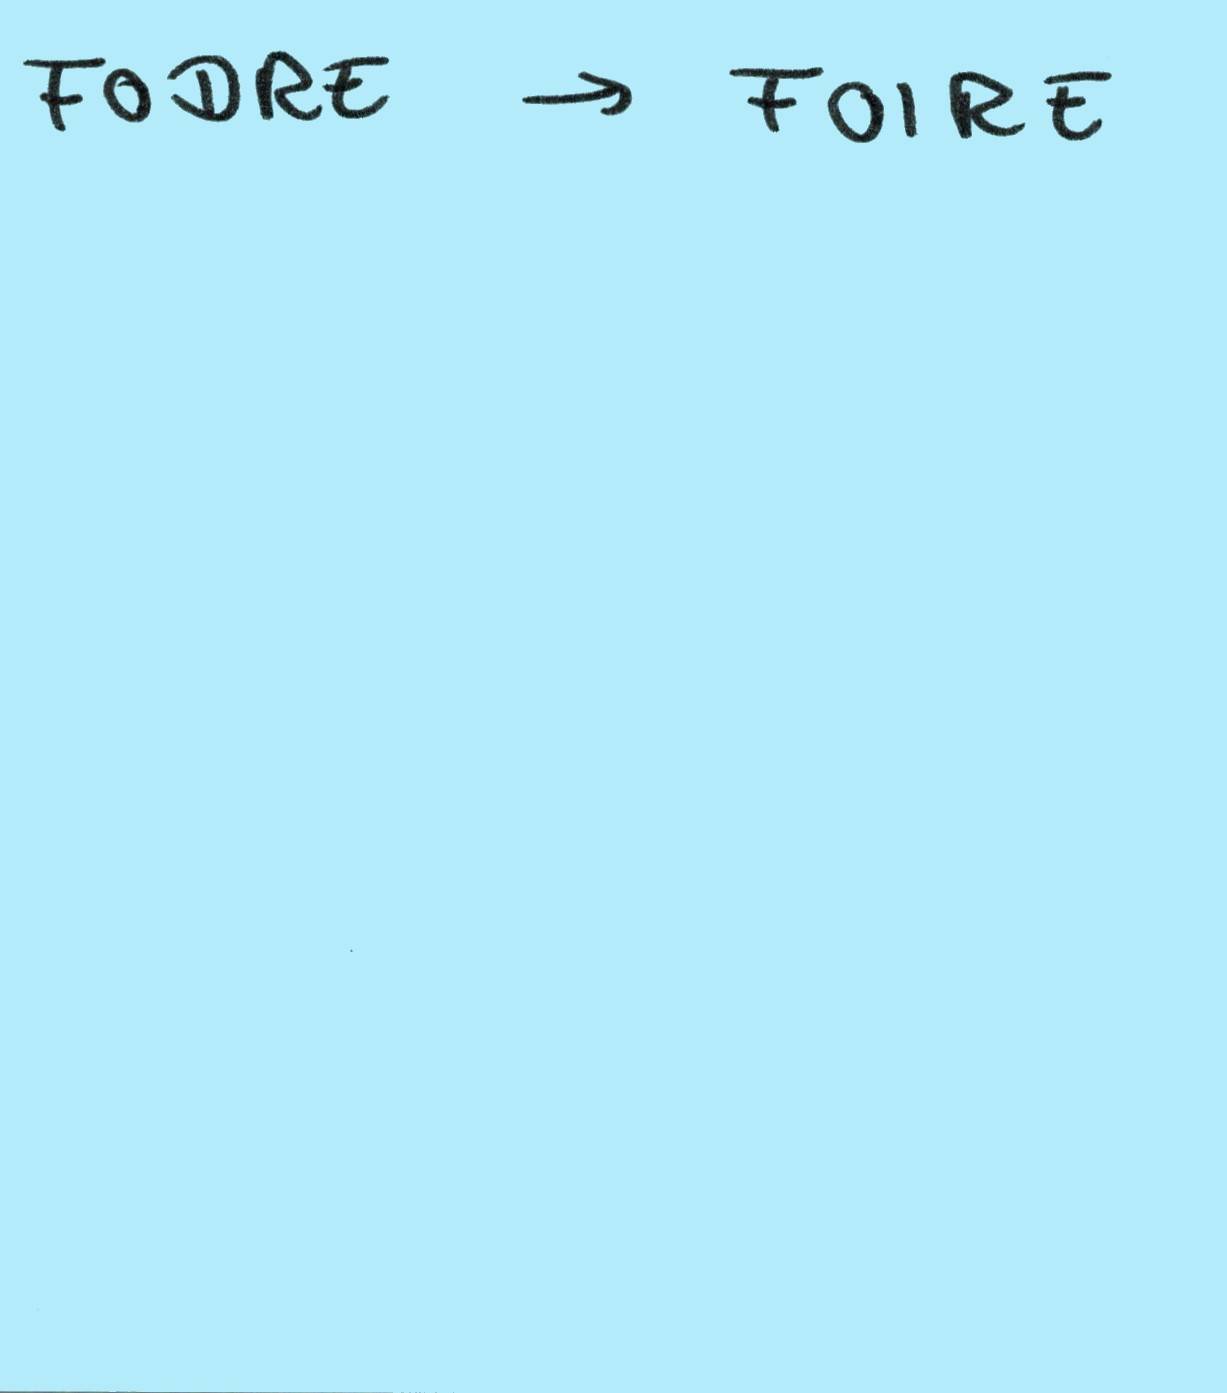 FODRE → FOIRE